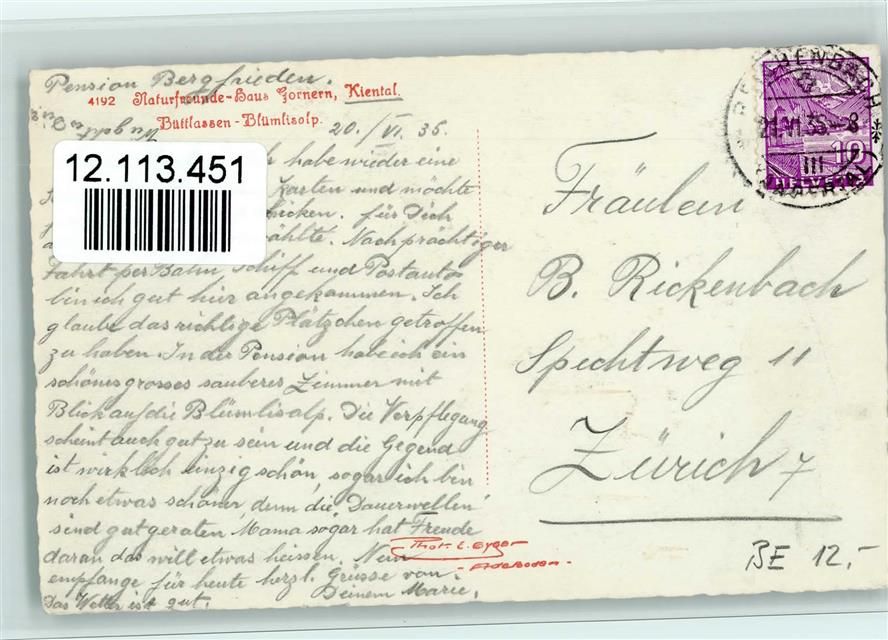 Pension Bergfrieden.
4192 Naturfreunde-Haus Gornern, Kiental.
Büttlassen-Blümlisalp.
20./VI. 35.
12.113.451
habe wieder eine
Karten und möchte
schicken. für Dich
wählte. Nach prächtiger
Fahrt per Bahn, Schiff und Postauto
bin ich gut hier angekommen. Ich
glaube das richtige Plätzchen getroffen
zu haben. In der Pension habe ich ein
schönes grosses sauberes Zimmer mit
Blick auf die Blümlisalp. Die Verpflegung
scheint auch gut zu sein und die Gegend
ist wirklich einzig schön, sogar ich bin
noch etwas schöner, denn die "Dauerwellen"
sind gut geraten, Mama sogar hat Freude
daran das will etwas heissen. Nun
empfange für heute herzl. Grüsse von
Deinem Marie.
Das Wetter ist gut.
Phot. E. Gyger
- Adelboden -
REICHENBACH
21.VI.35-8
III
10
HELVETIA
Fräulein
B. Rickenbach
Spechtweg 11
Zürich 7
BE 12.-